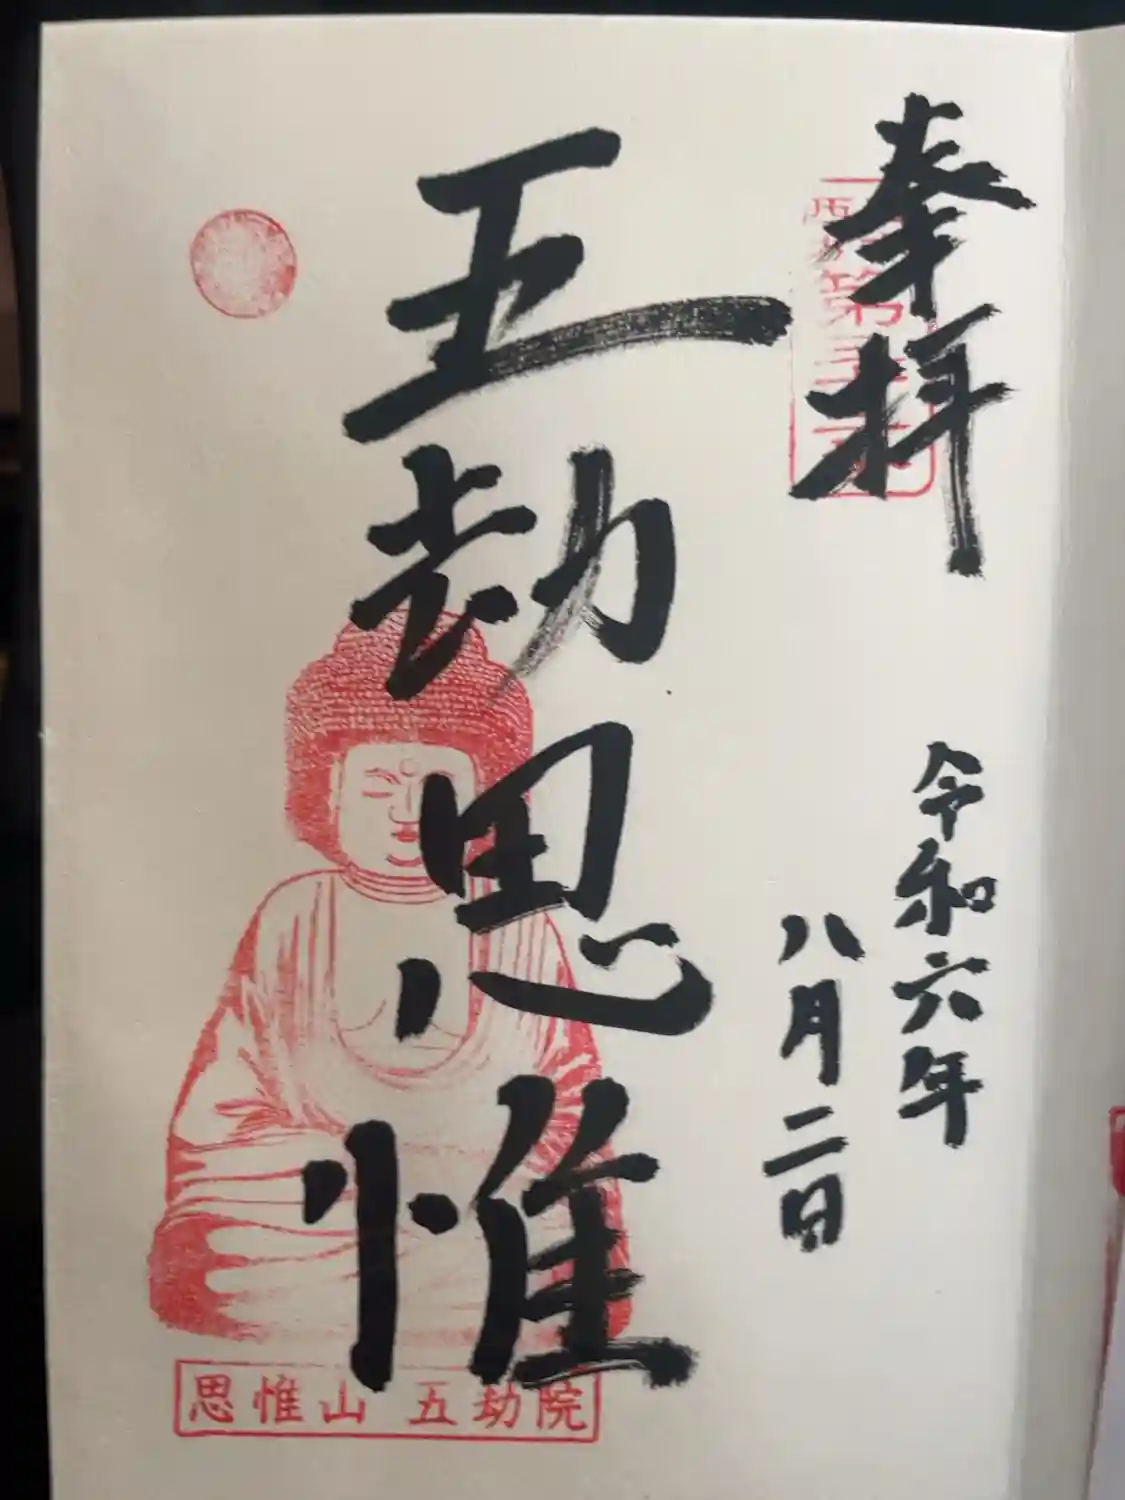 奉拝
令和六年
八月二日
五劫思惟
思惟山 五劫院